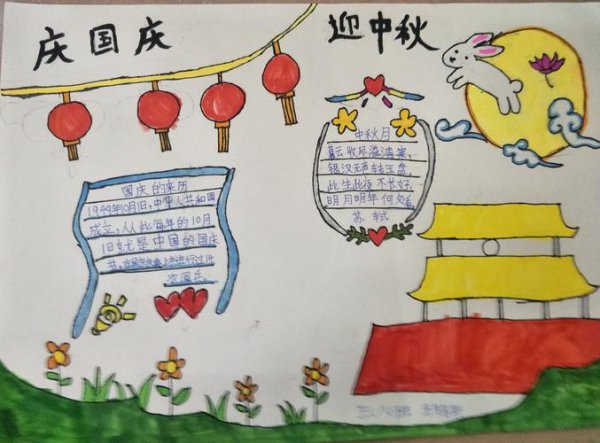 庆国庆
迎中秋
中秋月
暮云收尽溢清寒,
银汉无声转玉盘,
此生此夜不长好,
明月明年何处看
苏轼
国庆的来历
1949年10月1日,中华人共和国
成立,从此每年的10月
1日就是中国的国庆
节,在国庆